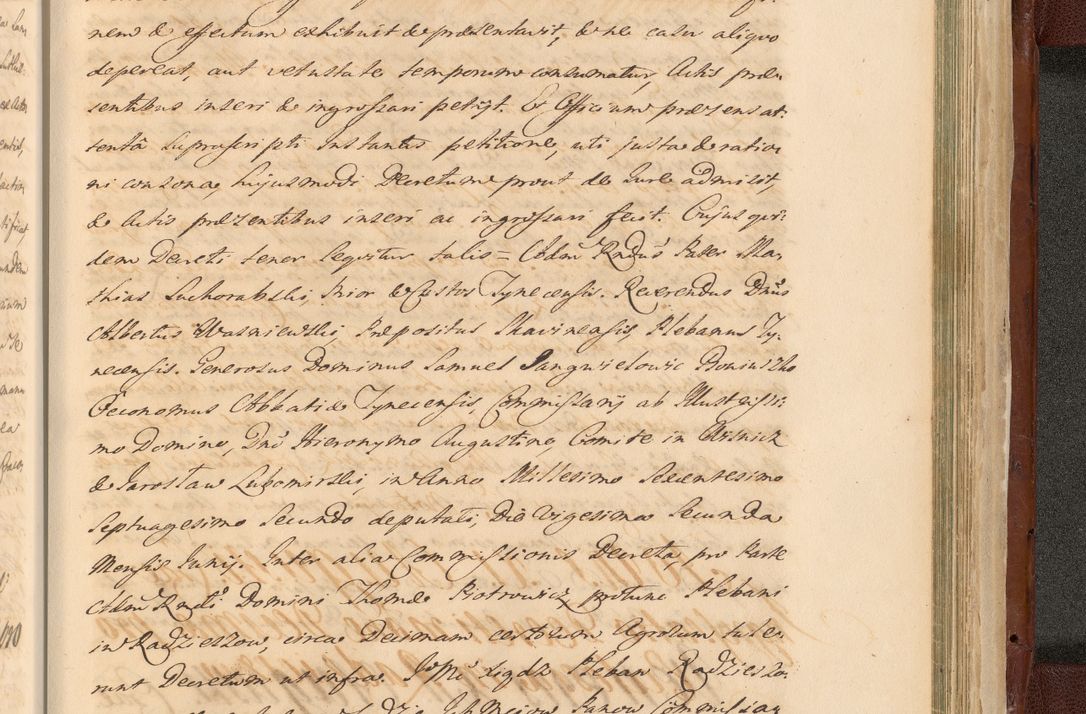 nem & effectum exhibuit & præsentavit, & ne casu aliquo
depereat, aut vetustate temporum consumatur, Actis præ-
sentibus inseri & ingrossari petijt. Et Officium præsens at-
tentâ suprascripti Instantis petitione, uti justa & ratio-
ni consona, hujusmodi Decretum prout de Iure admisit,
& Actis præsentibus inseri ac ingrossari fecit. Cujus qui-
dem Decreti tenor sequitur talis = Adm Rndus Pater Ma-
thias Suchorabski, Prior & Custos Tynecensis. Reverendus Dnus
Albertus Wasniewski, Præpositus Skavinensis, Plebanus Ty-
necensis. Generosus Dominus Samuel Sangwielowic
Œconomus Abbatiæ Tynecensis, Commissarij ab Illustrissi-
mo Domino, Dno Hieronymo Augustino, Comite in Wisnicz
& Jaroslaw Lubomirski, in Anno Millesimo Sexcentesimo
Septuagesimo Secundo deputati, Die Vigesima Secunda
Mensis Junij. Inter alia Commissionis Decreta, pro Parte
Adm Rndi Domini Thomæ Piotrowicz protunc Plebani
in Radzieszow, circa Decimam certorum Agrorum tule-
runt Decretum ut infra. Xiądz Pleban Radzieszo-